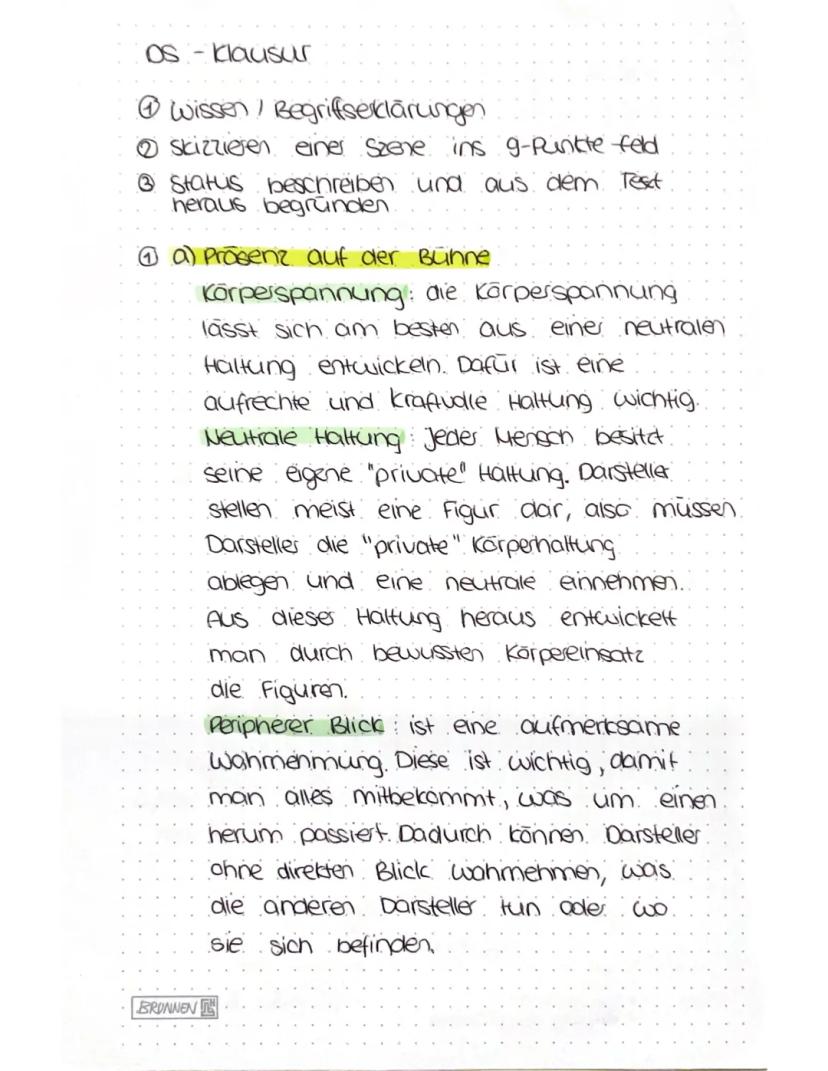 DS - Klausur
① Wissen / Begriffserklärungen
② Skizzieren einer Szene ins 9-Punkte-feld
③ Status beschreiben und aus dem Text
heraus begründen
① a) Präsenz auf der Bühne
Körperspannung: die Körperspannung
lässt sich am besten aus einer neutralen
Haltung entwickeln. Dafür ist eine
aufrechte und kraftvolle Haltung wichtig.
Neutrale Haltung: Jeder Mensch besitzt
seine eigene "private" Haltung. Darsteller
stellen meist eine Figur dar, also müssen
Darsteller die "private" Körperhaltung
ablegen und eine neutrale einnehmen.
Aus dieser Haltung heraus entwickelt
man durch bewussten Körpereinsatz
die Figuren.
Peripherer Blick: ist eine aufmerksame
Wahrnehmung. Diese ist wichtig, damit
man alles mitbekommt, was um einen
herum passiert. Dadurch können Darsteller
ohne direkten Blick wahrnehmen, was
die anderen Darsteller tun oder wo
sie sich befinden.
BRUNNEN